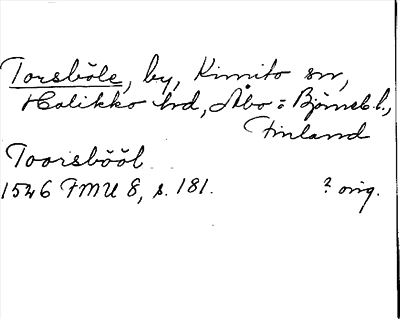 Torsböle, by, Kimito sn,
Halikko hd, Åbo = Björneb. l.,
Finland
Toorsbööl
1546 FMU 8, s. 181. ? orig.